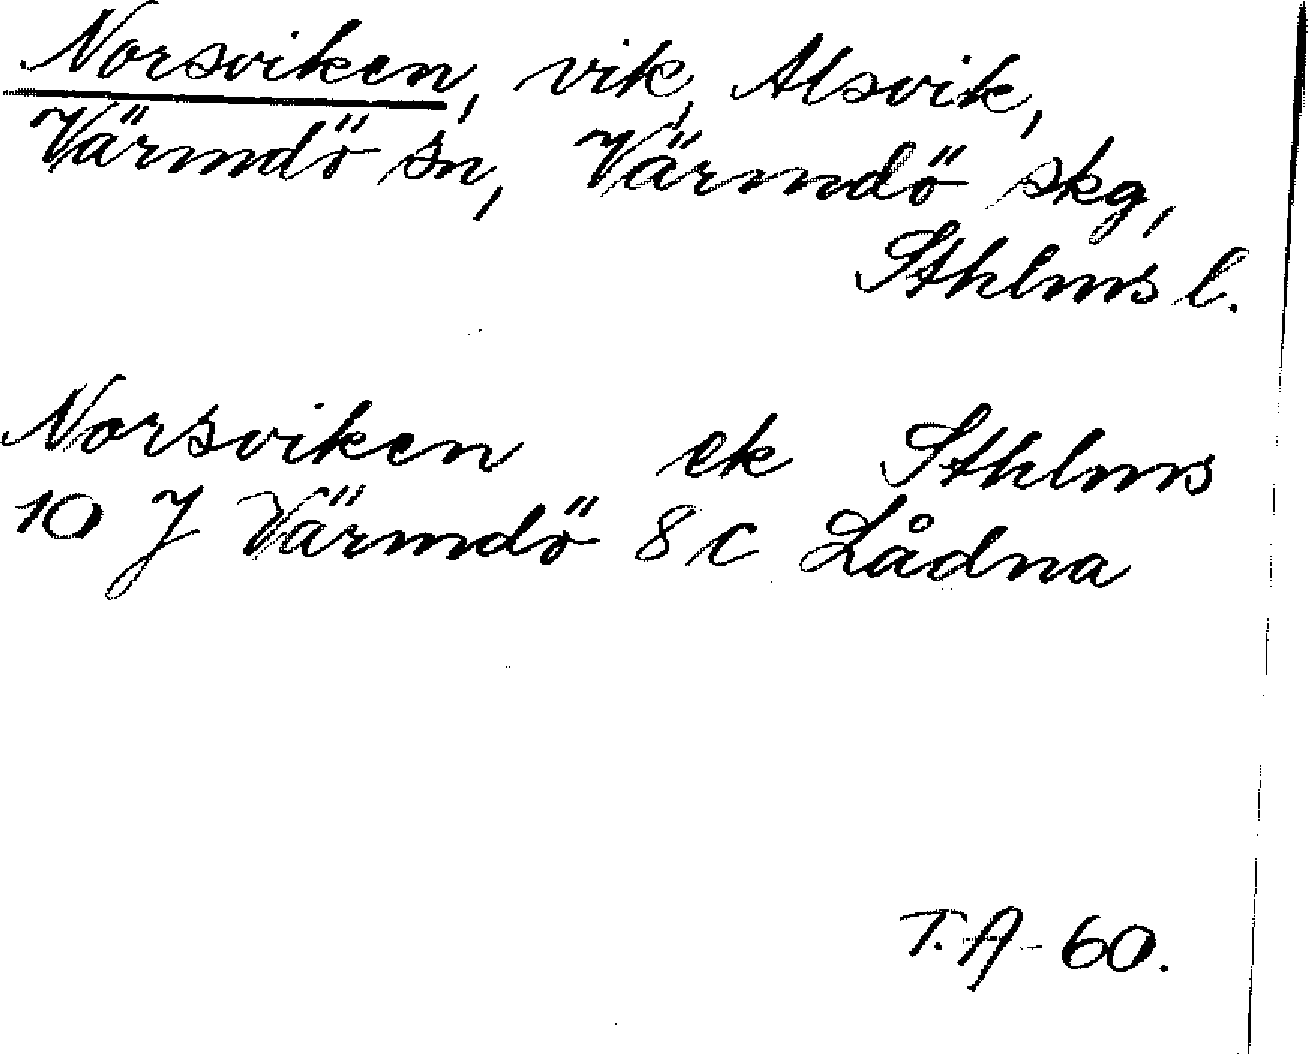 Norsviken, vik, Alsvik,
Värmdö sn, Värmdö skg,
Sthlms l.
Norsviken ek Sthlms
10 J Värmdö 8 c Lådna
T. A-60.